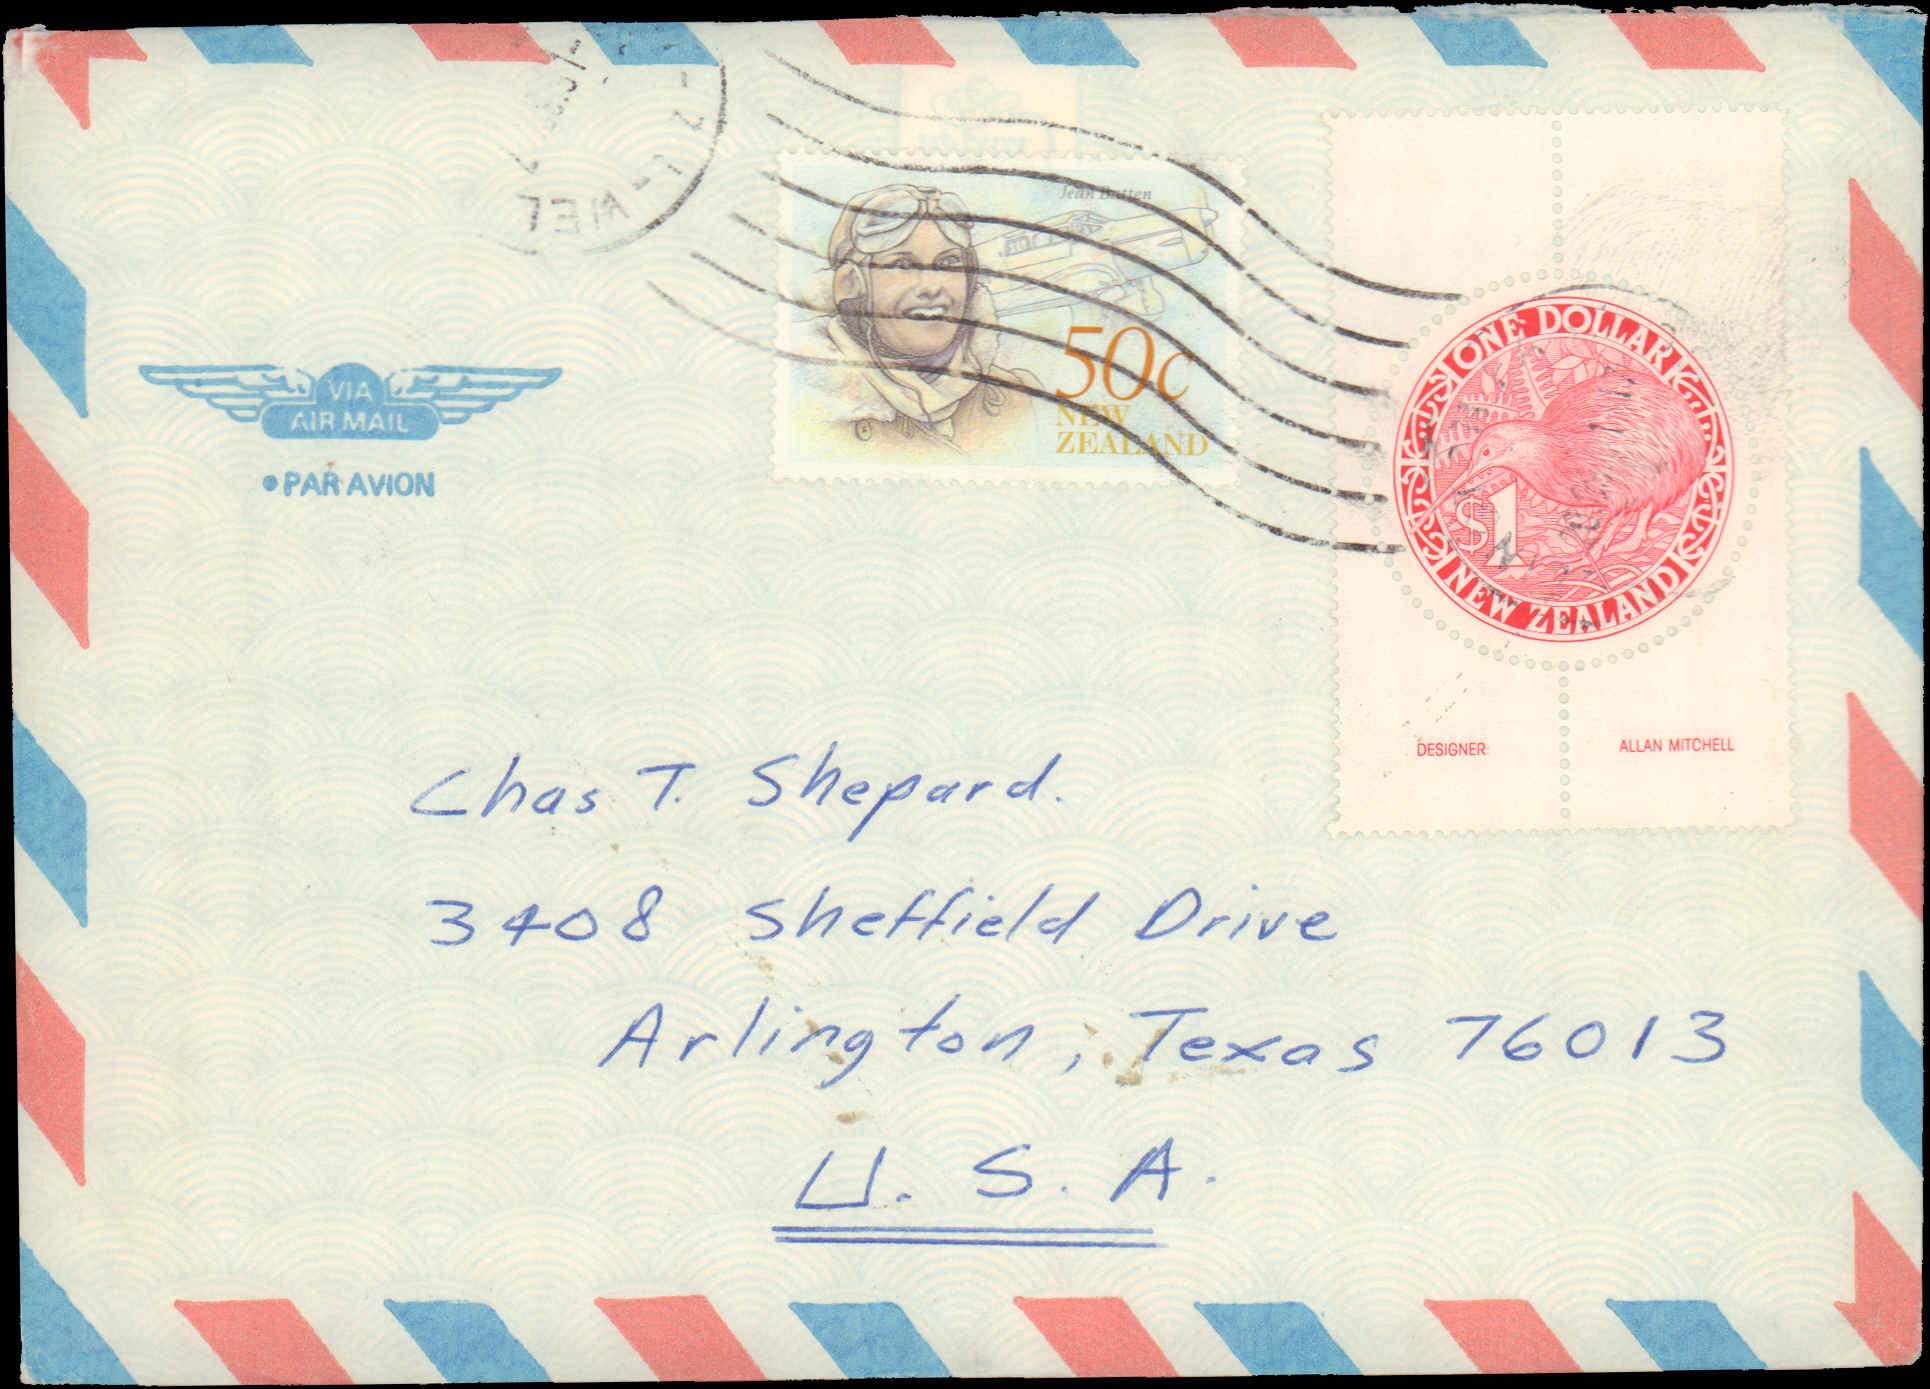 Jean Batten
50c
NEW
ZEALAND
ONE DOLLAR
$1
NEW ZEALAND
DESIGNER: ALLAN MITCHELL
VIA
AIR MAIL
• PAR AVION
Chas T. Shepard.
3408 Sheffield Drive
Arlington, Texas 76013
U. S. A.